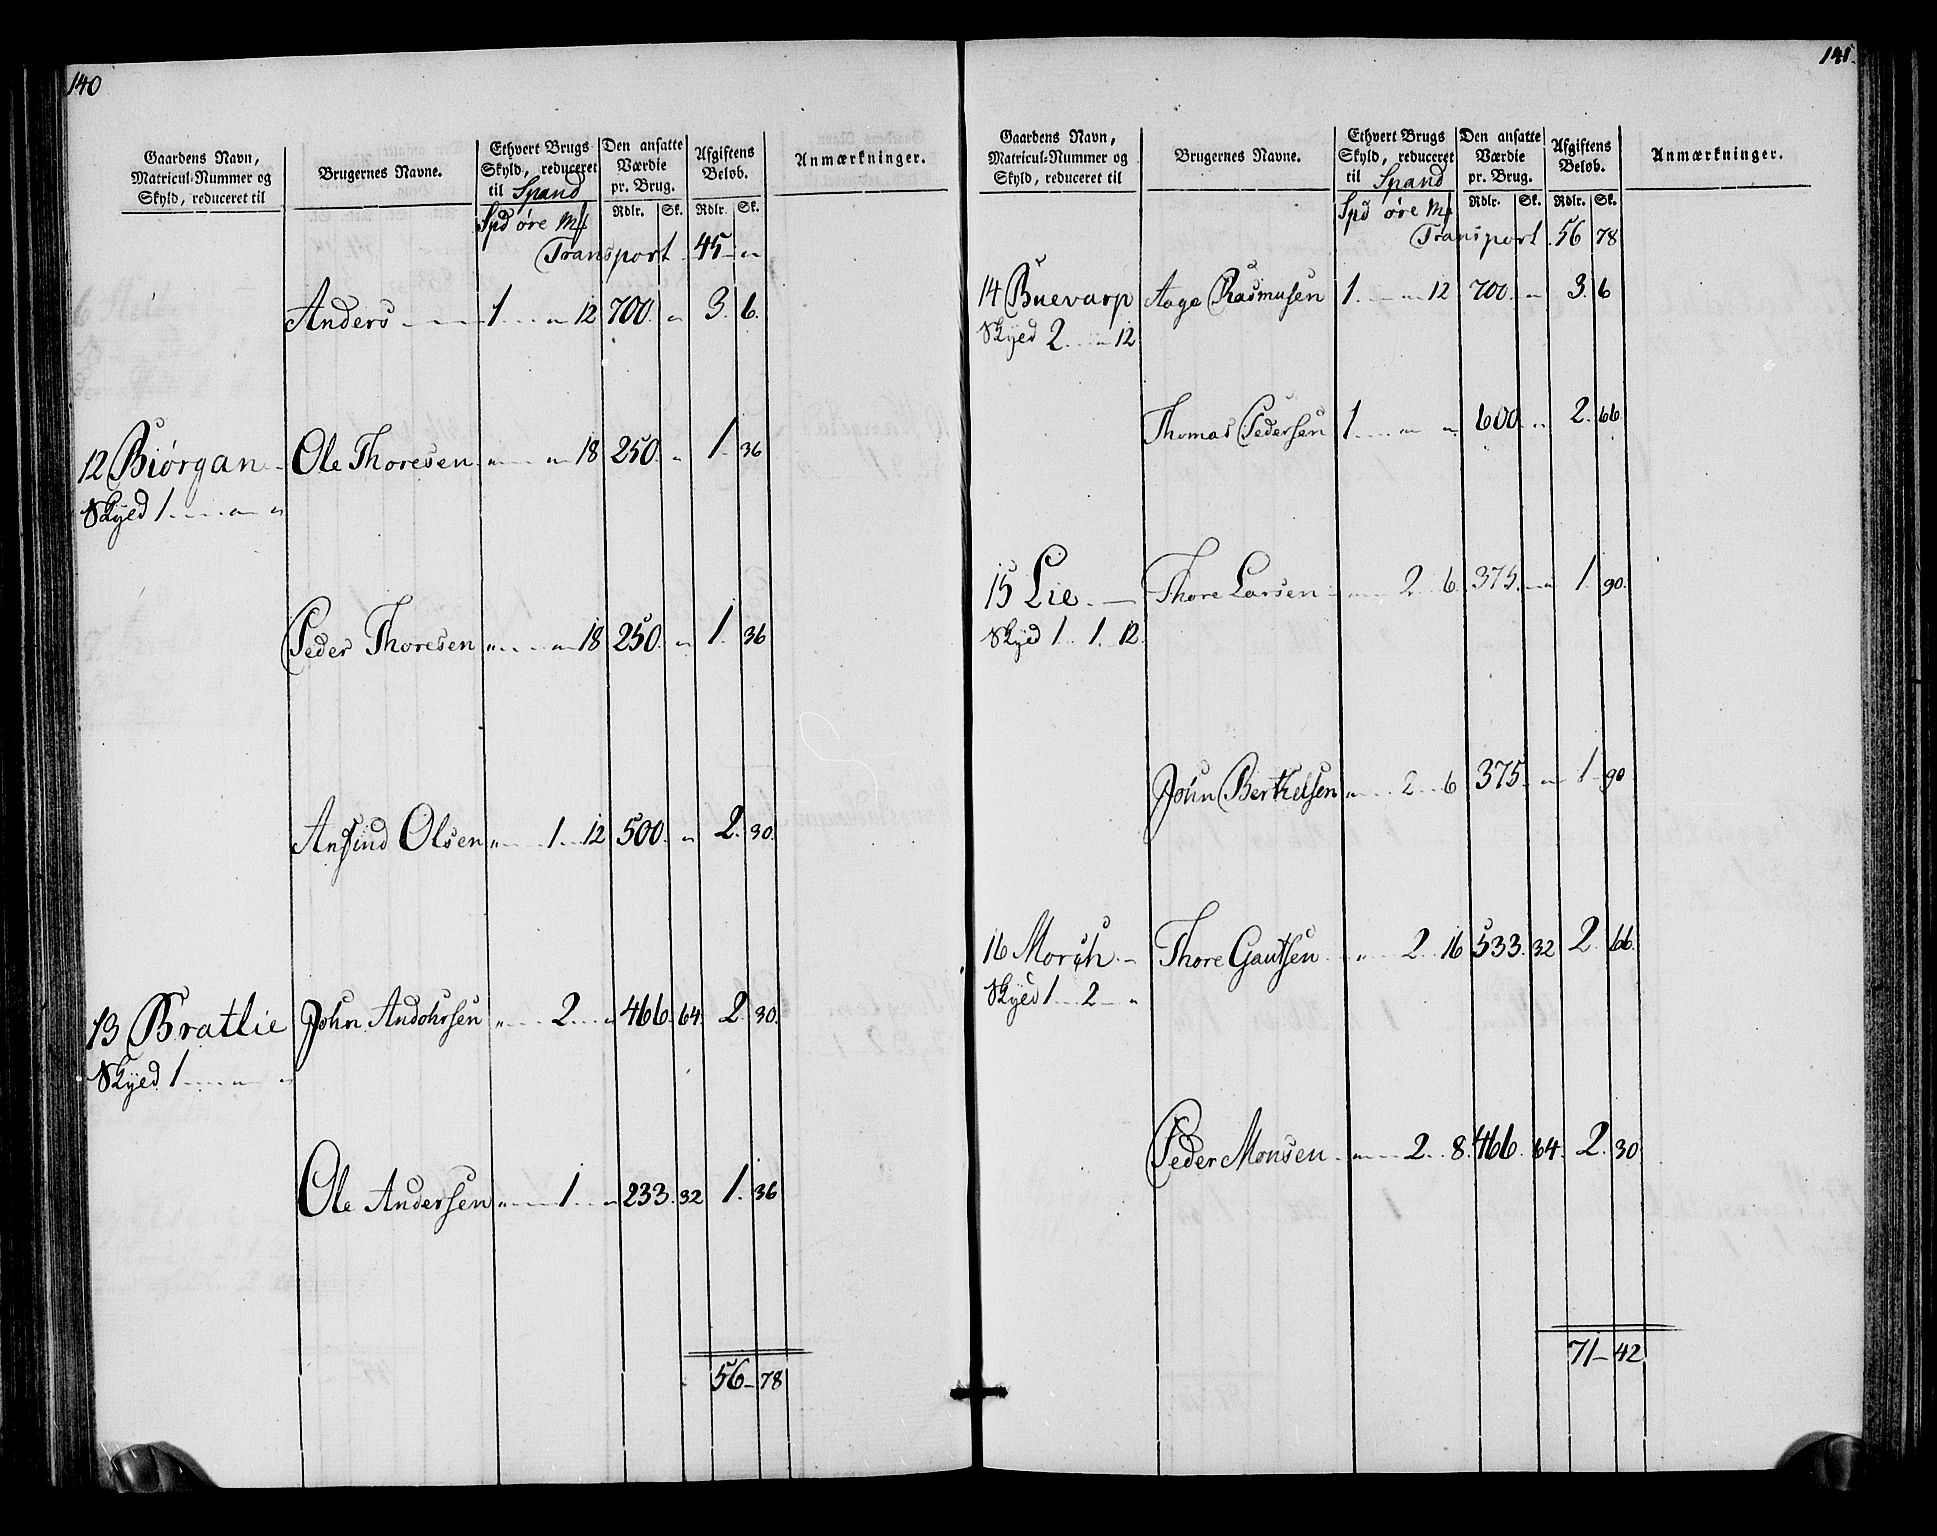 140
Gaardens Navn, Matricul-Nummer og Skyld, reduceret til
Brugernes Navne.
Ethvert Brugs Skyld, reduceret til Spand
Den ansatte Værdie pr. Brug.
Afgiftens Beløb.
Anmærkninger.
Spd øre Mk
Rdlr. Sk. Rdlr. Sk.
Transport 45 - "
Anders 1 " 12 700 " 3. 6.
12 Biørgan Ole Thoresen " " 18 250. " 1. 36
Skyed 1 " "
Peder Thoresen " " 18 250. " 1. 36
Ansind Olsen " 1 12 500 " 2. 30.
13 Bratlie John Andohrsen " 2 " 466. 64. 2. 30.
Skyed 1 " "
Ole Andersen " 1 " 233. 32 1. 36
56 - 78
141.
Gaardens Navn, Matricul-Nummer og Skyld, reduceret til
Brugernes Navne.
Ethvert Brugs Skyld, reduceret til Spand
Den ansatte Værdie pr. Brug.
Afgiftens Beløb.
Anmærkninger.
Spd øre Mk
Rdlr. Sk. Rdlr. Sk.
Transport 56 78
14 Buevarp Aage Rasmusen 1. " 12 700. " 3. 6
Skyed 2. " 12
Thomas Pedersen 1 " " 600. " 2. 66
15 Lie Thore Larsen " 2 6. 375. " 1. 90.
Skyed 1. 1. 12.
John Berthelsen " 2 6 375. " 1 90
16 Morsch Thore Gautsen " 2. 16 533. 32 2. 66.
Skyed 1 2 "
Peder Monsen " 2. 8. 466. 64. 2. 30
71 - 42